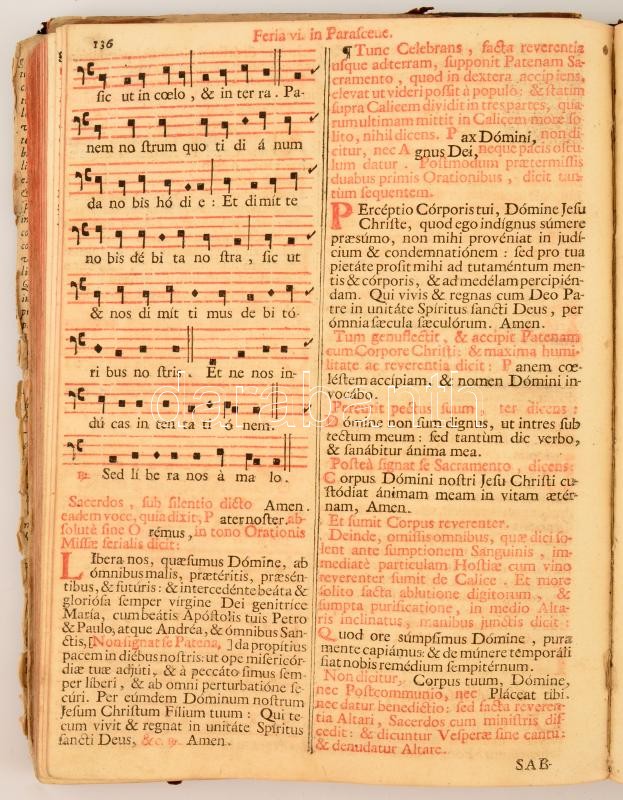 136
Feria vi. in Parasceve.
sic ut in cœlo , & in ter ra. Pa-
nem no strum quo ti di á num
da no bis hó di e : Et dimít te
no bis dé bi ta no stra , sic ut
& nos di mít ti mus de bi tó-
ri bus no stris. Et ne nos in-
dú cas in ten ta ti ó nem.
℟. Sed lí be ra nos à ma lo.
Sacerdos , sub silentio dicto Amen.
eadem voce, quia dixit, P ater noster. ab-
solutè sine O rémus , in tono Orationis
Missæ ferialis dicit :
LIbera nos, quæsumus Dómine, ab
ómnibus malis, prætéritis, præsén-
tibus, & futúris : & intercedénte beáta &
gloriósa semper vírgine Dei genitríce
María, cum beátis Apóstolis tuis Petro
& Paulo, atque Andréa, & ómnibus San-
ctis, [Non signat se Patena, ] da propítius
pacem in diébus nostris: ut ope misericór-
diæ tuæ adjúti , & à peccáto simus sem-
per líberi , & ab omni perturbatióne se-
cúri. Per eúmdem Dóminum nostrum
Jesum Christum Fílium tuum : Qui te-
cum vivit & regnat in unitáte Spíritus
sancti Deus, &c. ℟. Amen.
¶ Tunc Celebrans , facta reverentia
usque ad terram, supponit Patenam Sa-
cramento , quod in dextera accipiens,
elevat ut videri possit à populo : & statim
supra Calicem dividit in tres partes, qua-
rum ultimam mittit in Calicem more so-
lito, nihil dicens. P ax Dómini, non di-
citur, nec A gnus Dei, neque pacis oscu-
lum datur . Postmodum prætermissis
duabus primis Orationibus , dicit tan-
tùm sequentem.
PErcéptio Córporis tui, Dómine Jesu
Christe, quod ego indígnus súmere
præsúmo, non mihi provéniat in judí-
cium & condemnatiónem : sed pro tua
pietáte prosit mihi ad tutaméntum men-
tis & córporis, & ad medélam percipién-
dam. Qui vivis & regnas cum Deo Pa-
tre in unitáte Spíritus sancti Deus , per
ómnia sǽcula sæculórum. Amen.
Tum genuflectit, & accipit Patenam
cum Corpore Christi : & maxima humi-
litate ac reverentia dicit : P anem cœ-
léstem accípiam, & nomen Dómini in-
vocábo.
Percutit pectus suum , ter dicens :
Dómine non sum dignus, ut intres sub
tectum meum : sed tantùm dic verbo,
& sanábitur ánima mea.
Posteà signat se Sacramento , dicens:
Corpus Dómini nostri Jesu Christi cu-
stódiat ánimam meam in vitam ætér-
nam, Amen.
Et sumit Corpus reverenter.
Deinde, omissis omnibus, quæ dici so-
lent ante sumptionem Sanguinis , im-
mediatè particulam Hostiæ cum vino
reverenter sumit de Calice . Et more
solito facta ablutione digitorum , &
sumpta purificatione , in medio Alta-
ris inclinatus , manibus junctis dicit :
Quod ore súmpsimus Dómine , pura
mente capiámus: & de múnere temporáli
fiat nobis remédium sempitérnum.
Non dicitur, Corpus tuum, Dómine,
nec Postcommunio, nec Pláceat tibi.
nec datur benedictio: sed facta reveren-
tia Altari, Sacerdos cum ministris dis-
cedit : & dicuntur Vesperæ sine cantu :
& denudatur Altare.
SAB-
darabanth